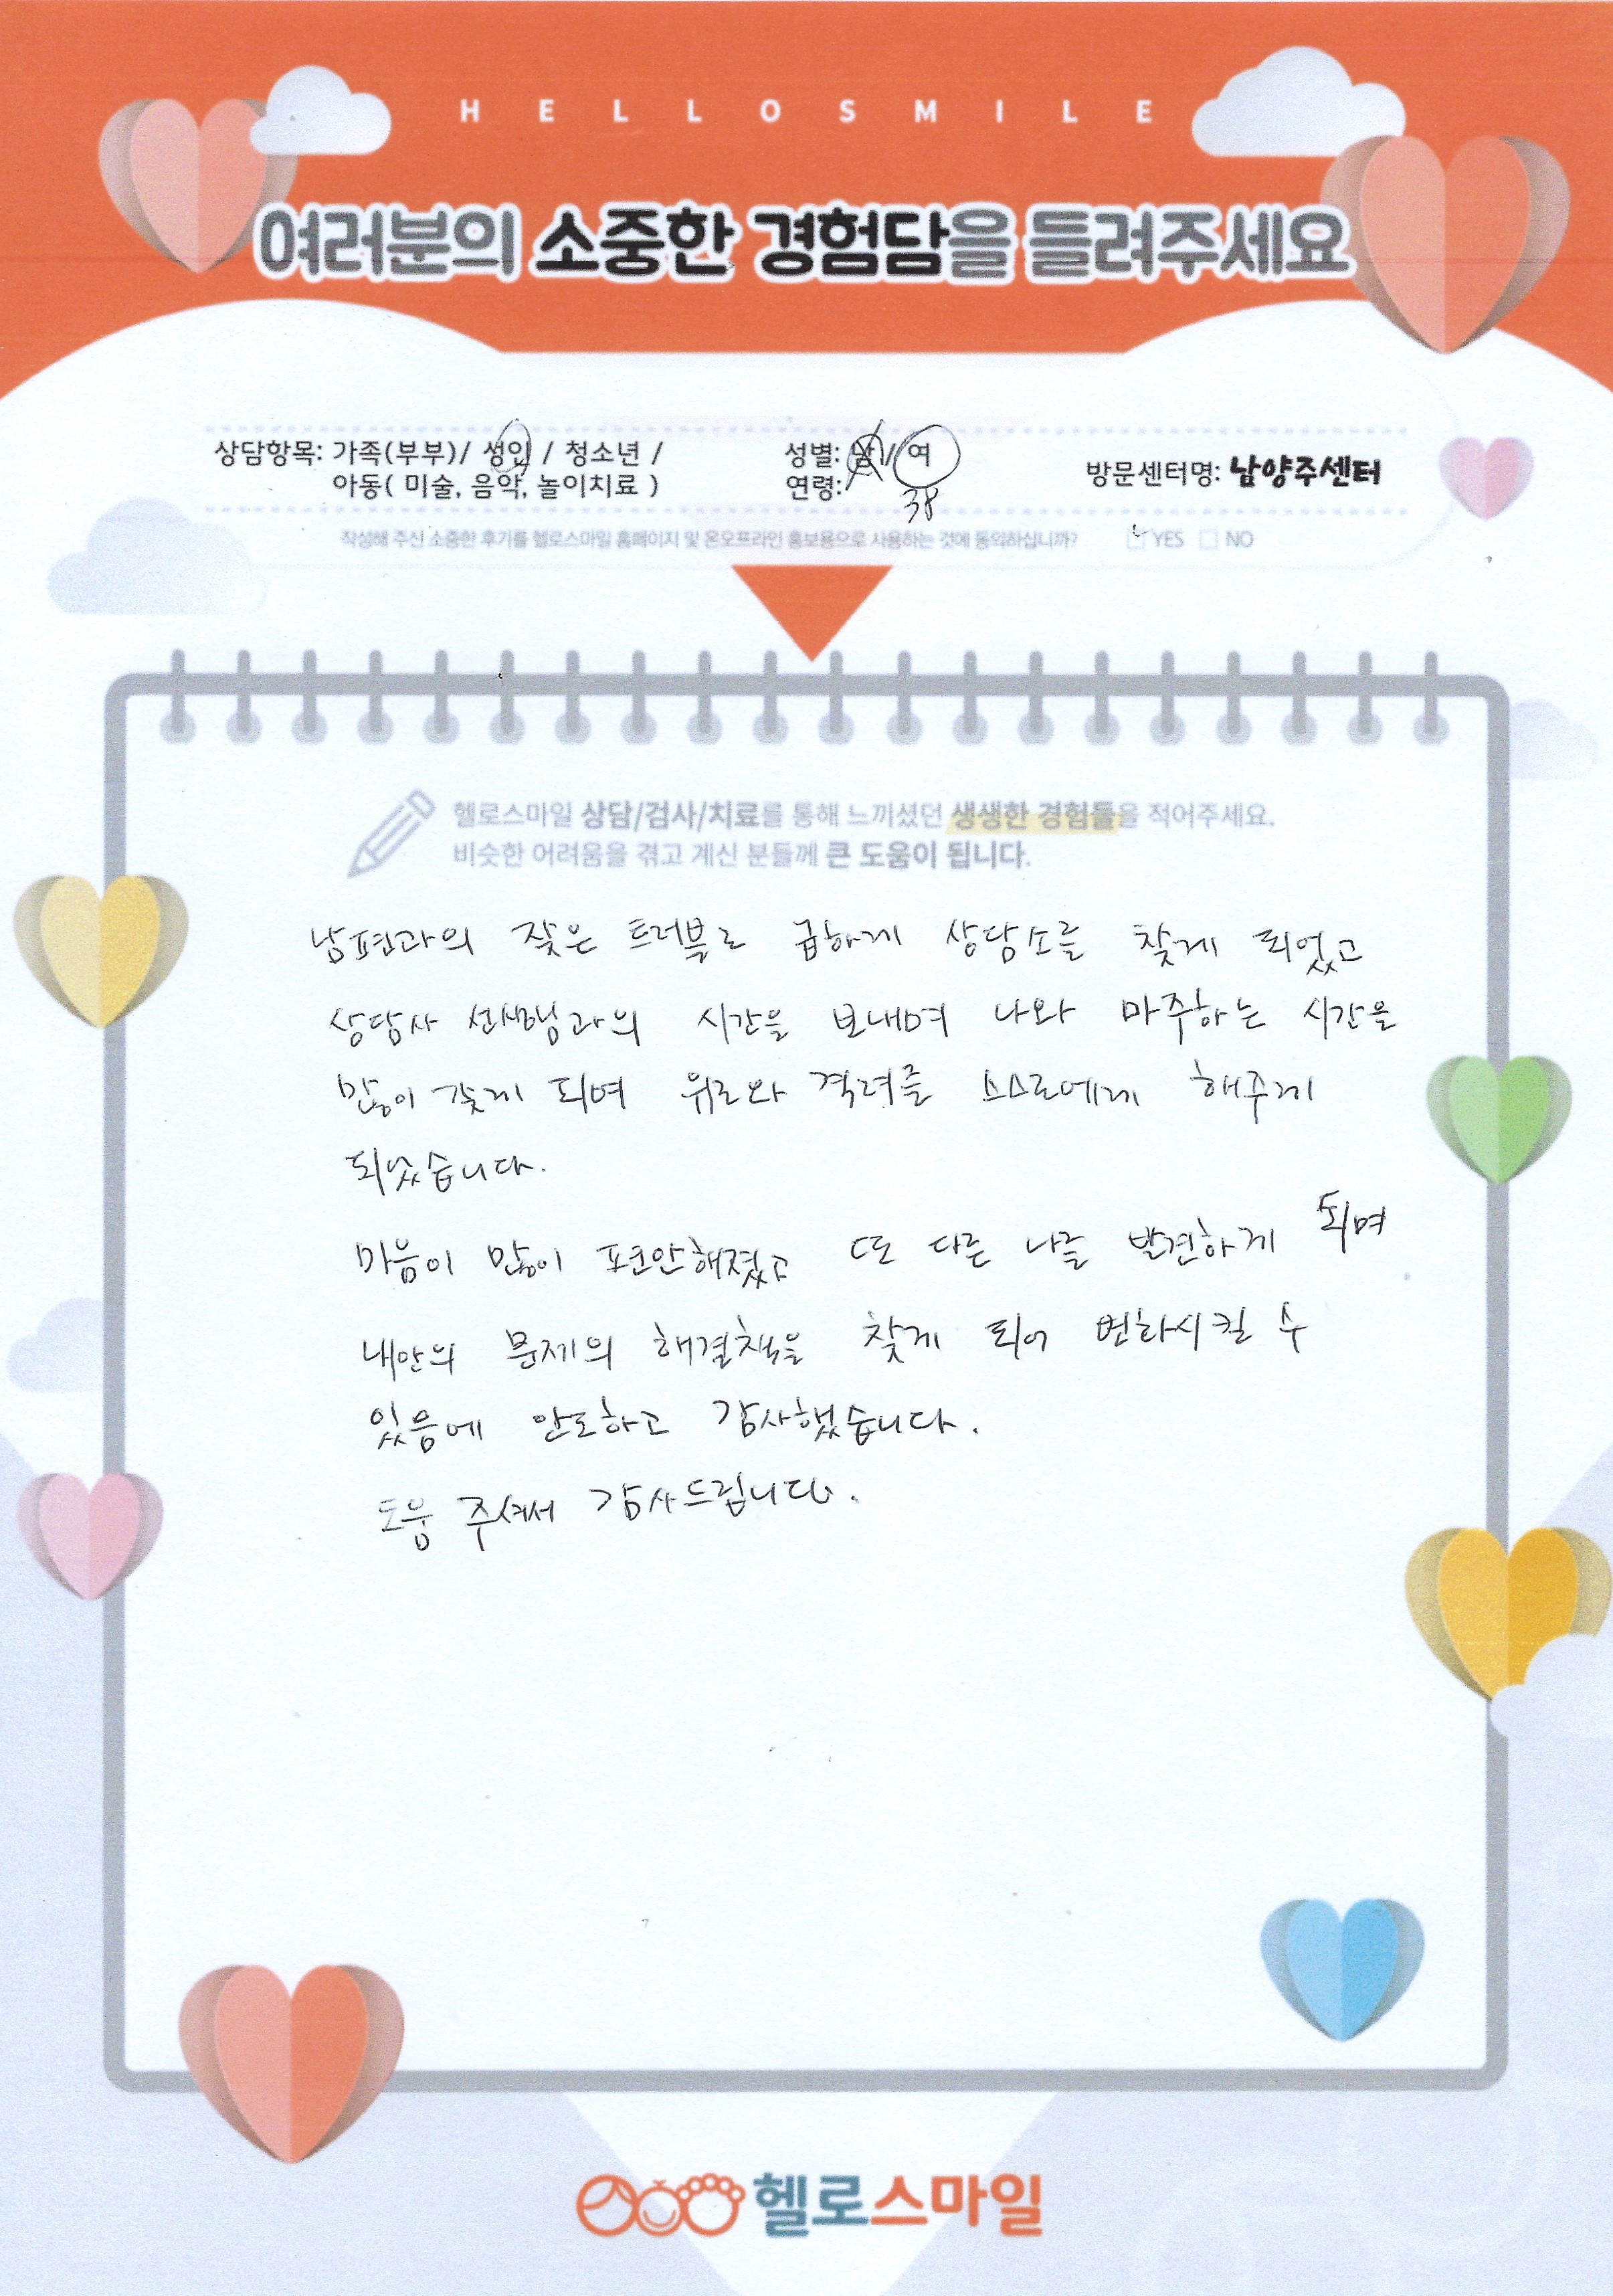 HELLOSMILE
여러분의 소중한 경험담을 들려주세요
상담항목: 가족(부부)/ 성인 / 청소년 /
아동( 미술, 음악, 놀이치료 )
성별: 남/ 여
연령:
38
방문센터명: 남양주센터
작성해 주신 소중한 후기를 헬로스마일 홈페이지 및 온오프라인 홍보용으로 사용하는 것에 동의하십니까? YES NO
헬로스마일 상담/검사/치료를 통해 느끼셨던 생생한 경험들을 적어주세요.
비슷한 어려움을 겪고 계신 분들께 큰 도움이 됩니다.
남편과의 잦은 트러블로 급하게 상담소를 찾게 되었고
상담사 선생님과의 시간을 보내며 나와 마주하는 시간을
많이 갖게 되며 위로와 격려를 스스로에게 해주게
되었습니다.
마음이 많이 편안해졌고 또 다른 나를 발견하게 되며
내안의 문제의 해결책을 찾게 되어 변화시킬 수
있음에 안도하고 감사했습니다.
도움 주셔서 감사드립니다.
헬로스마일